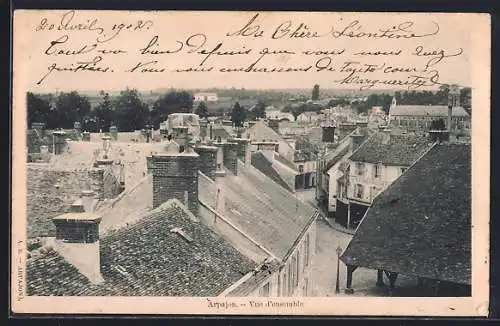 20 Avril 1902 Ma Chère Léontine
Tout va bien depuis que vous nous avez
quittées. Nous vous embrassons de tout cœur
Marguerite
Arpajon. — Vue d'ensemble
A. B. — ARPAJON